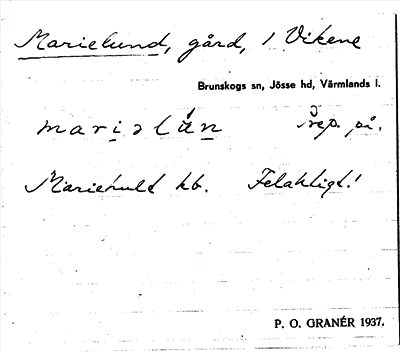 Marielund, gård, i Vikene
Brunskogs sn, Jösse hd, Värmlands l.
mariəlún prep. på.
Mariehuld kb. Felaktigt!
P. O. GRANÉR 1937.